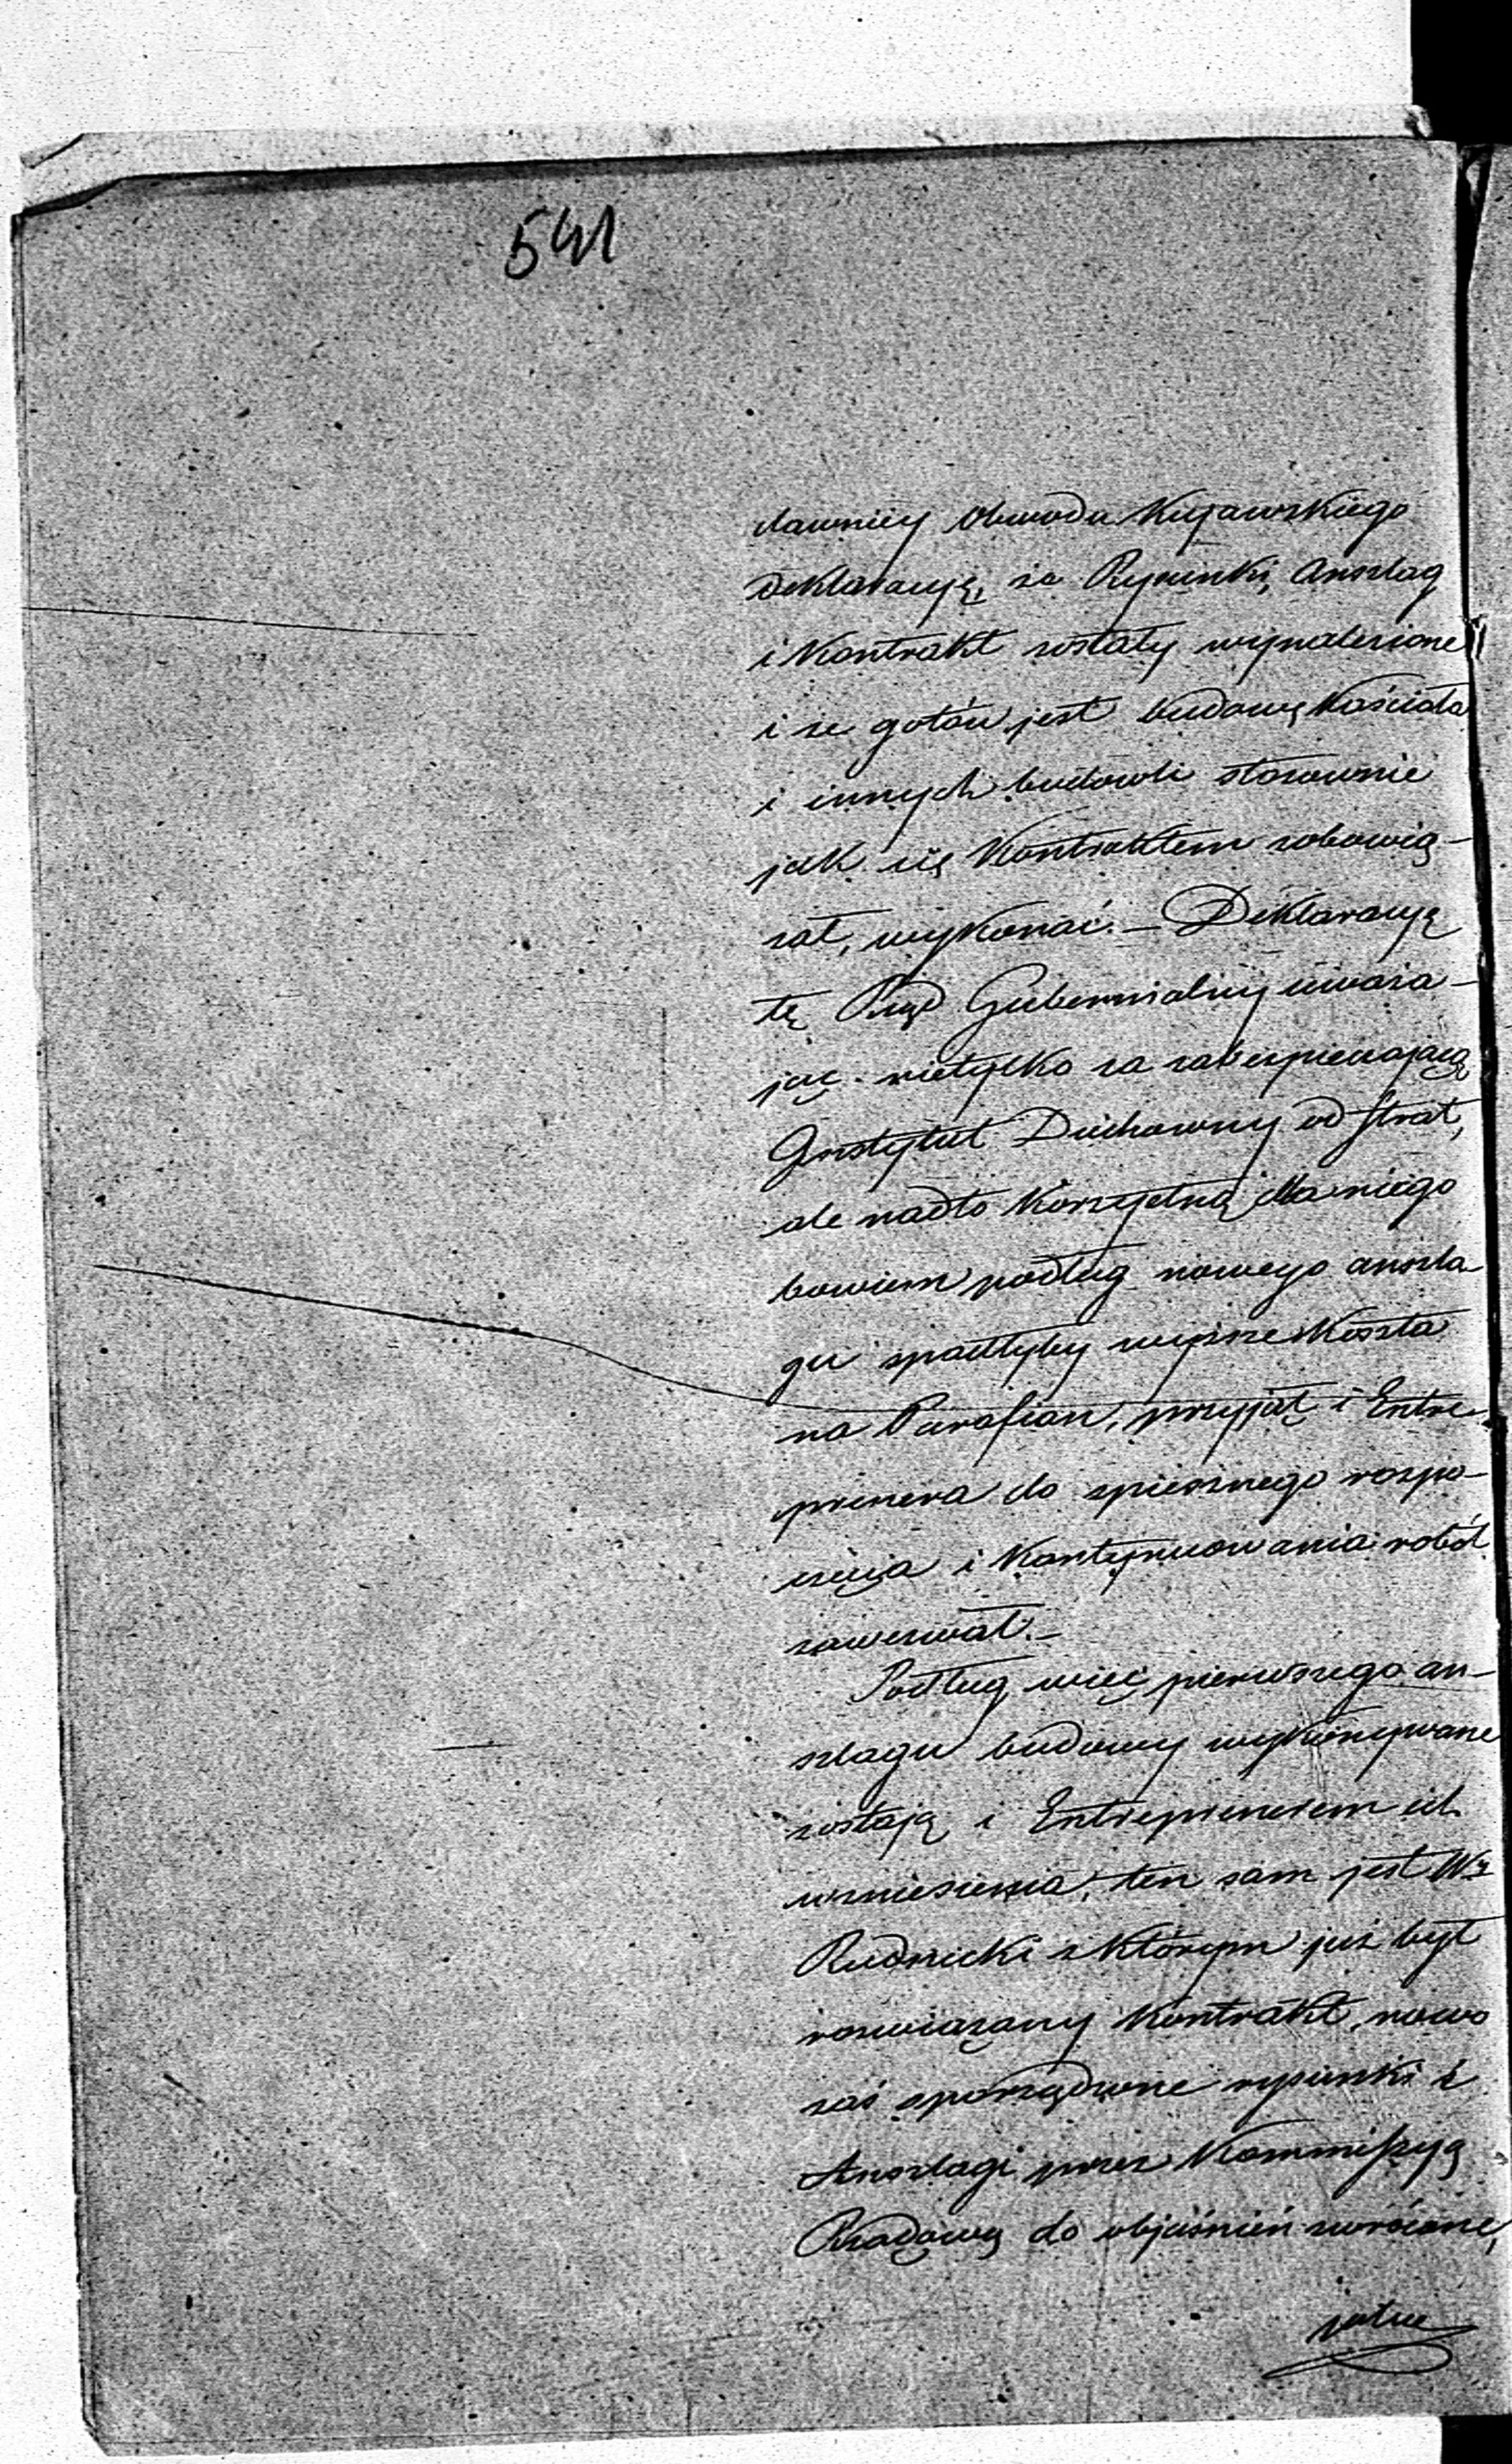 541
downiczy Obwodu Kujawskiego
Deklaracyę, że Rysunki, Anszlag
i Kontrakt zostały wynalezione
i że gotów jest budowę Kościoła
i innych budowli stosownie
jak się Kontraktem zobowią-
zał, wykonać. — Deklaracyę
tę Rząd Gubernialny uważa-
jąc nietylko za zabezpieczającą
Instytut Duchowny od strat,
ale nadto korzystną dla niego
bowiem podług nowego anszla-
gu spadłyby wyższe Koszta
na Parafian, przyjął i Entre-
prenera do spiesznego rozpo-
częcia i Kontynuowania robót
zawezwał. —
Podług więc pierwszego an-
szlagu budowy wykonywane
zostają i Entreprenerem ich
wzniesienia, ten sam jest Wy
Rudnicki z którym już był
rozwiązany Kontrakt, nowo
zaś sporządzone rysunki i
Anszlagi przez Kommissyą
Rządową do objaśnień zwrócone,